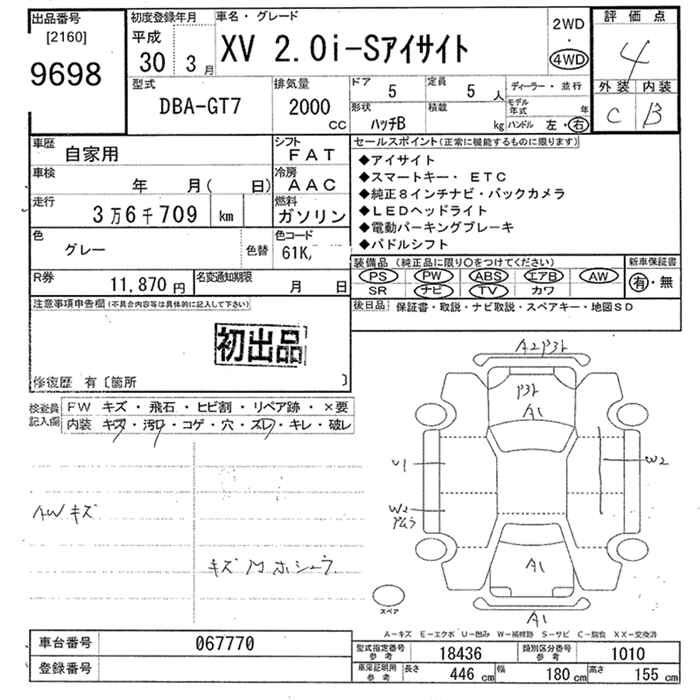 出品番号
[2160]
9698
初度登録年月
平成
30 3月
車名・グレード
XV 2.0i-Sアイサイト
2WD
・
4WD
評価点
4
外装 内装
C B
型式
DBA-GT7
排気量
2000
CC
ドア
5
定員
5人
形状
ハッチB
積載
kg
ディーラー・並行
モデル年式 年
ハンドル 左・右
車歴
自家用
シフト
FAT
車検
年 月( 日)
冷房
AAC
走行
3万6千709 km
燃料
ガソリン
色
グレー
色替
色コード
61K,
R券
11,870 円
名変通知期限
月 日
セールスポイント(正常に機能するものに限ります)
◆アイサイト
◆スマートキー・ ETC
◆純正8インチナビ・バックカメラ
◆LEDヘッドライト
◆電動パーキングブレーキ
◆パドルシフト
装備品(純正品に限り○をつけてください)
PS PW ABS エアB AW
SR ナビ TV カワ
新車保証書
有・無
後日品 保証書・取説・ナビ取説・スペアキー・地図SD
注意事項申告欄(不具合内容等は具体的に記入して下さい)
初出品
修復歴 有〔箇所 〕
検査員記入欄
FW キズ・飛石・ヒビ割・リペア跡・×要
内装 キズ・汚れ・コゲ・穴・スレ・キレ・破レ
AWキズ
A1
U1
W2
W2
A1
A1
スペア
A-キズ E-エクボ U-凹み W-補修跡 S-サビ C-腐食 XX-交換済
車台番号 067770
登録番号
型式指定番号 参考 18436
類別区分番号 参考 1010
車庫証明用 参考 長さ 446 cm 幅 180 cm 高さ 155 cm